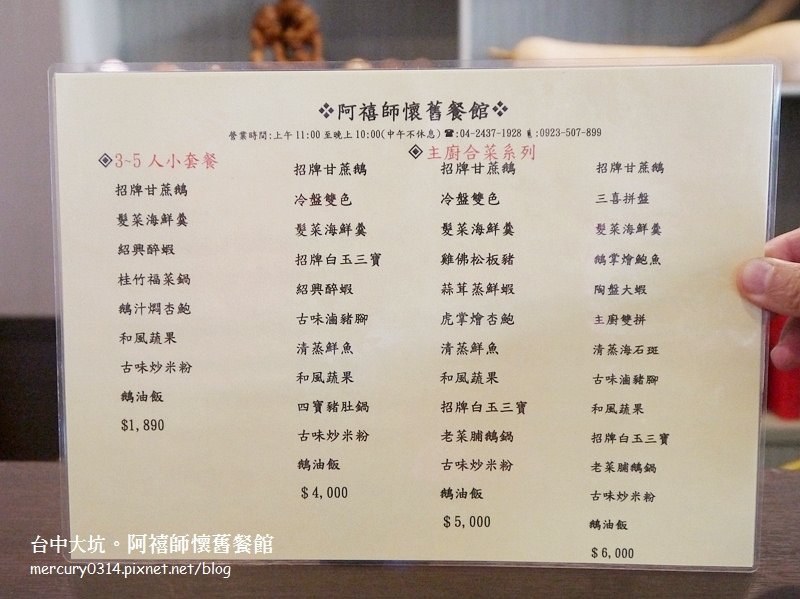 ❖阿禧師懷舊餐館❖
營業時間:上午 11:00 至晚上 10:00(中午不休息) ☎:04-2437-1928 :0923-507-899
◈3~5 人小套餐
招牌甘蔗鵝
髮菜海鮮羹
紹興醉蝦
桂竹福菜鍋
鵝汁燜杏鮑
和風蔬果
古味炒米粉
鵝油飯
$1,890
◈主廚合菜系列
招牌甘蔗鵝
冷盤雙色
髮菜海鮮羹
招牌白玉三寶
紹興醉蝦
古味滷豬腳
清蒸鮮魚
和風蔬果
四寶豬肚鍋
古味炒米粉
鵝油飯
$4,000
招牌甘蔗鵝
冷盤雙色
髮菜海鮮羹
雞佛松板豬
蒜茸蒸鮮蝦
虎掌燴杏鮑
清蒸鮮魚
和風蔬果
招牌白玉三寶
老菜脯鵝鍋
古味炒米粉
鵝油飯
$5,000
招牌甘蔗鵝
三喜拼盤
髮菜海鮮羹
鵝掌燴鮑魚
陶盤大蝦
主廚雙拼
清蒸海石斑
古味滷豬腳
和風蔬果
招牌白玉三寶
老菜脯鵝鍋
古味炒米粉
鵝油飯
$6,000
台中大坑。阿禧師懷舊餐館
mercury0314.pixnet.net/blog